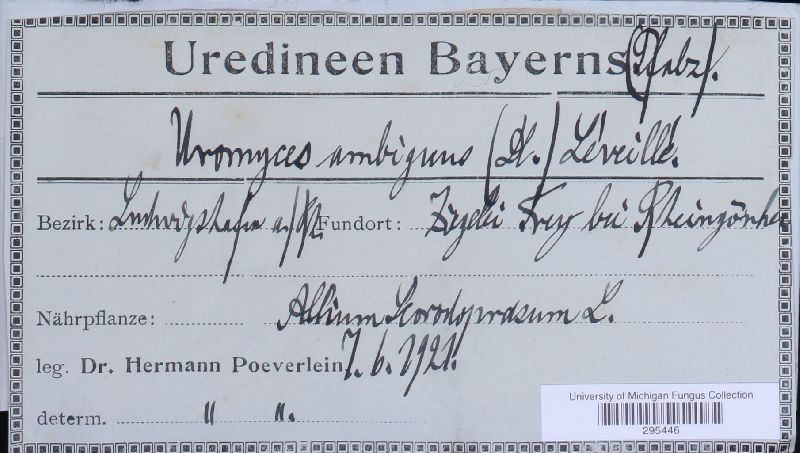 Uredineen Bayerns (Pfalz).
Uromyces ambiguus (DC.) Léveillé.
Bezirk: Ludwigshafen a/Rh. Fundort: Ziegelei Frey bei Rheingönheim
Nährpflanze: Allium Scorodoprasum L.
leg. Dr. Hermann Poeverlein, 7. 6. 1921.
determ. " ".
University of Michigan Fungus Collection
295446